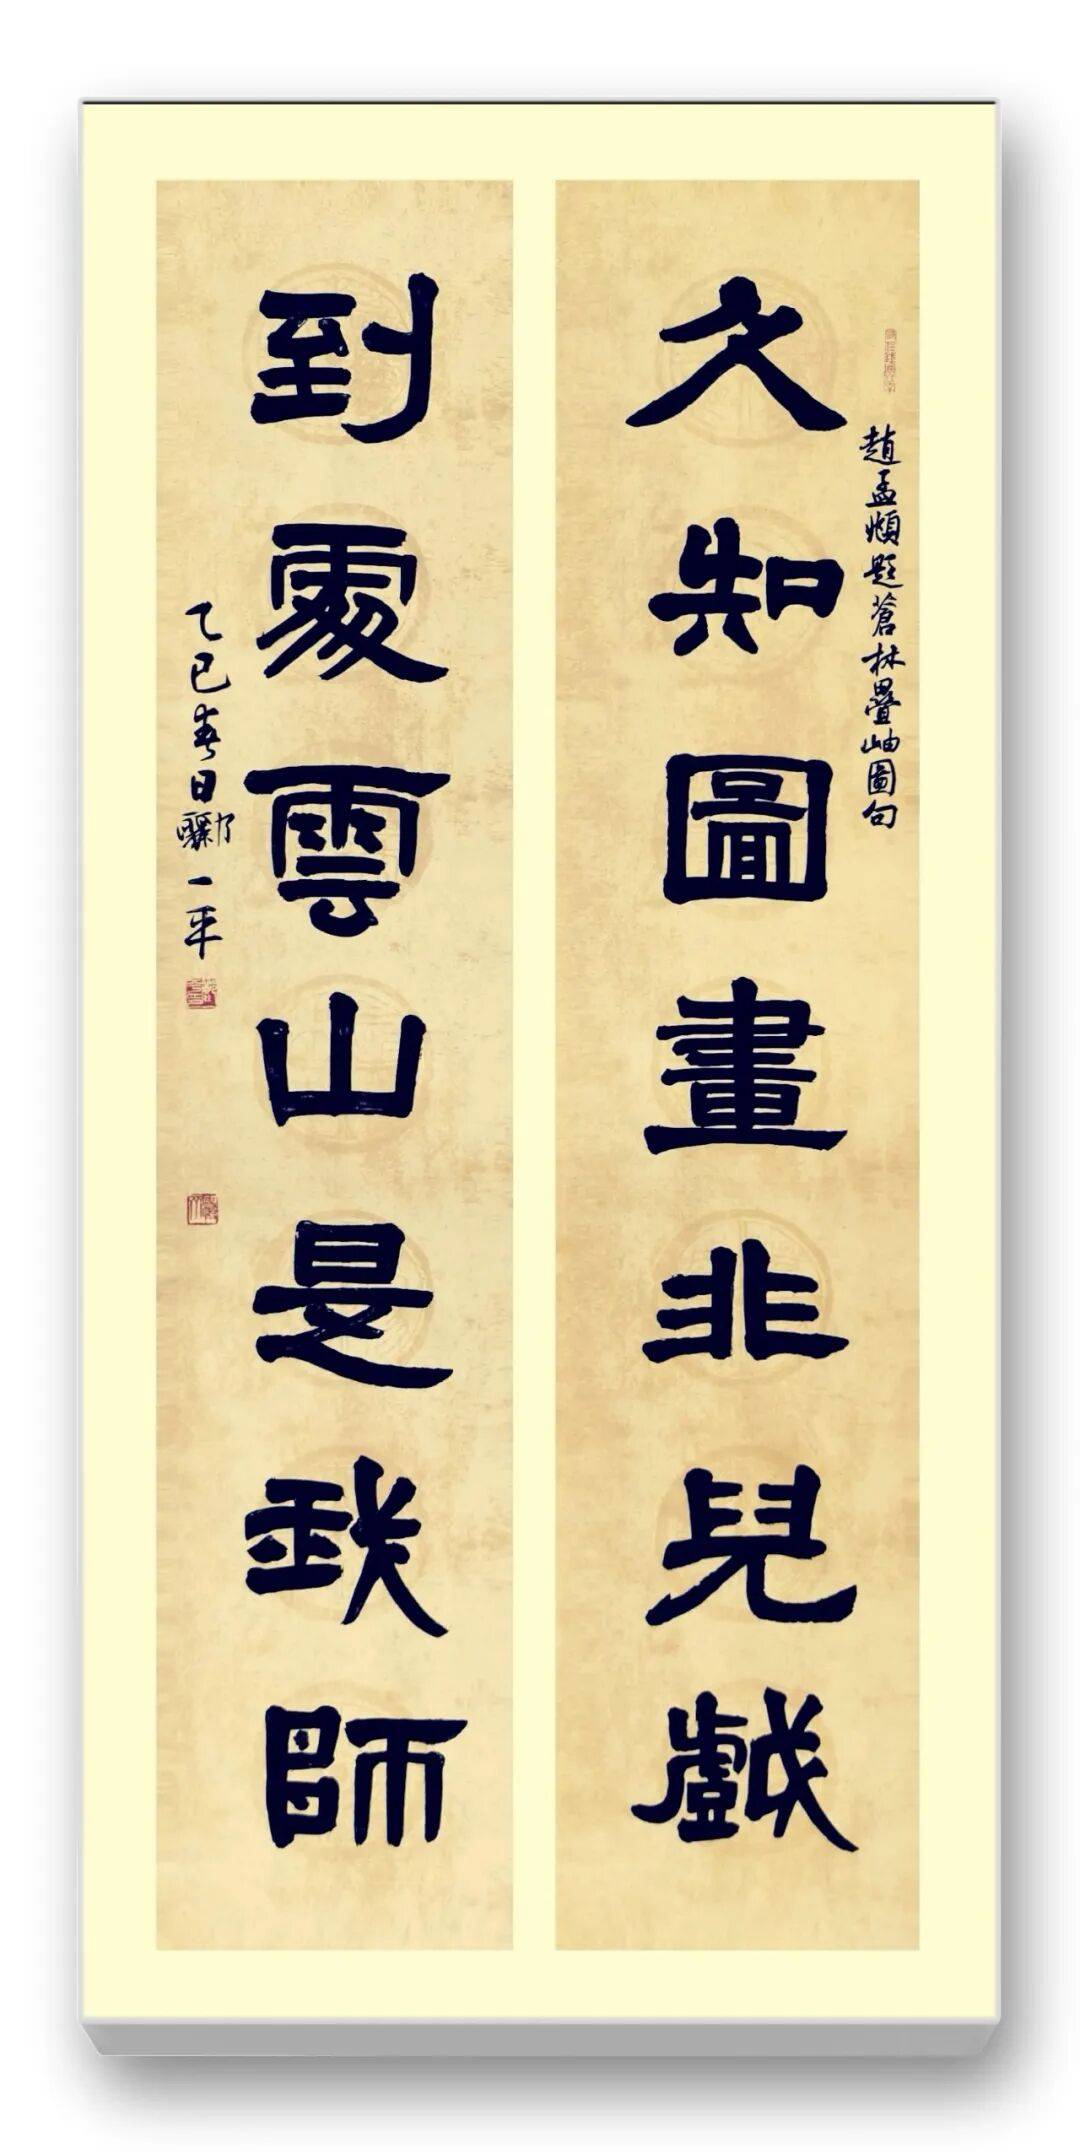 趙孟頫題蒼林疊岫圖句
久知圖畫非兒戲
到處雲山是我師
乙巳春日酈一平